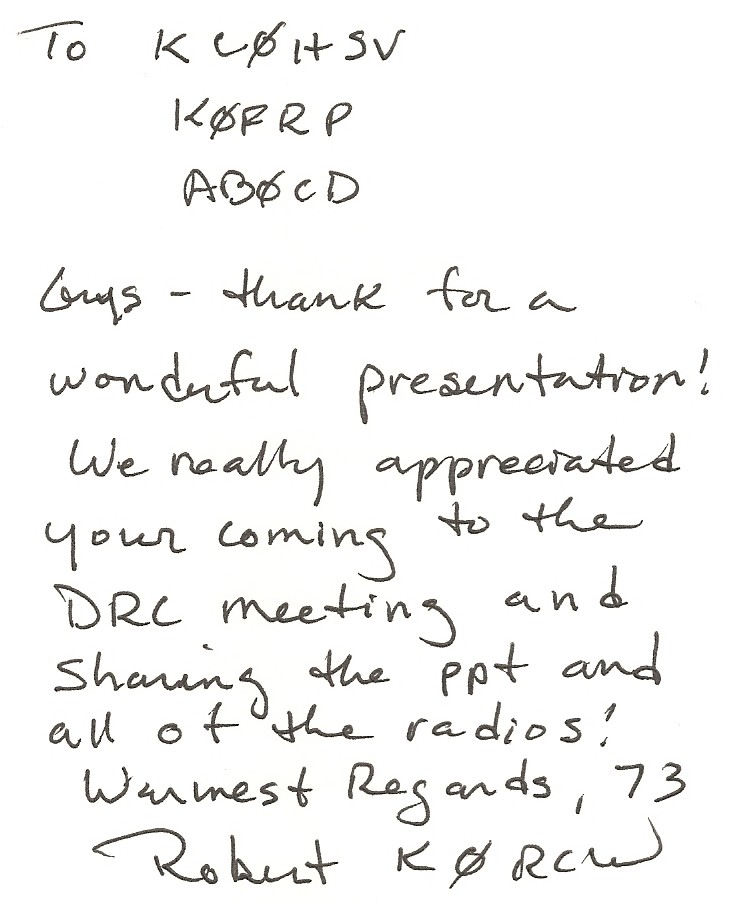 To KCØHSV
KØFRP
ABØCD
Guys - thank for a
wonderful presentation!
We really appreciated
your coming to the
DRC meeting and
sharing the ppt and
all of the radios!
Warmest Regards, 73
Robert KØRCW